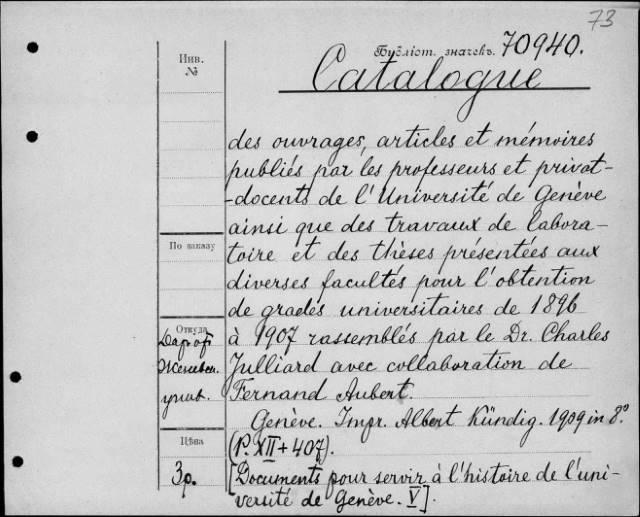 73
Библіот. значекъ. 70940.
Инв.
№
Catalogue
des ouvrages, articles et mémoires
publiés par les professeurs et privat-
-docents de l'Université de Genève
ainsi que des travaux de labora-
По заказу
toire et des thèses présentées aux
diverses facultés pour l'obtention
de grades universitaires de 1896
Откуда
à 1907 rassemblés par le Dr. Charles
Даръ отъ
Женевск.
Julliard avec collaboration de
унив.
Fernand Aubert.
Genève. Impr. Albert Kündig. 1909 in 8.°
Цѣна
(P. XII + 407).
3р.
[Documents pour servir à l'histoire de l'uni-
versité de Genève. V].